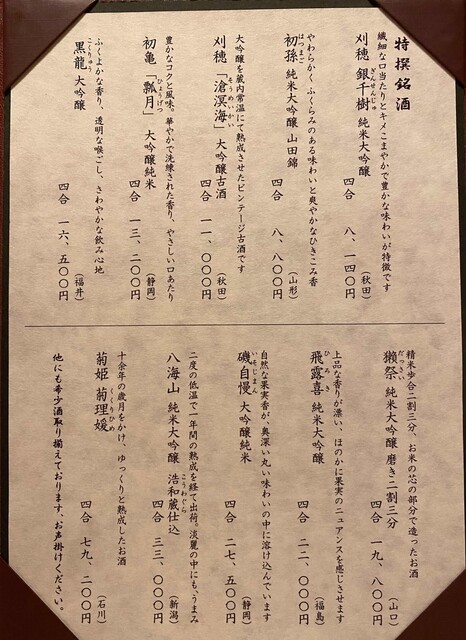 特撰銘酒
繊細な口当たりとキメこまやかで豊かな味わいが特徴です
刈穂 銀千樹 純米大吟醸 (秋田)
ぎんせんじゅ
四合 八、一四〇円
やわらかく ふくらみのある味わいと爽やかなひきこみ香
初孫 純米大吟醸 山田錦 (山形)
はつまご
四合 八、八〇〇円
大吟醸を蔵内常温にて熟成させたビンテージ古酒です
刈穂「滄溟海」大吟醸古酒 (秋田)
そうめいかい
四合 一一、〇〇〇円
豊かなコクと風味。華やかで洗練された香り、やさしい口あたり
初亀「瓢月」大吟醸純米 (静岡)
ひょうげつ
四合 一三、二〇〇円
ふくよかな香り、透明な喉ごし、さわやかな飲み心地
黒龍 大吟醸 (福井)
こくりゅう
四合 一六、五〇〇円
精米歩合二割三分、お米の芯の部分で造ったお酒
獺祭 純米大吟醸 磨き二割三分 (山口)
だっさい
四合 一九、八〇〇円
上品な香りが漂い、ほのかに果実のニュアンスを感じさせます
飛露喜 純米大吟醸 (福島)
ひろき
四合 二二、〇〇〇円
自然な果実香が、奥深い丸い味わいの中に溶け込んでいます
磯自慢 大吟醸純米 (静岡)
いそじまん
四合 二七、五〇〇円
二度の低温で一年間の熟成を経て出荷。淡麗の中にも、うまみ
八海山 純米大吟醸 浩和蔵仕込 (新潟)
こうわぐら
四合 三三、〇〇〇円
十余年の歳月をかけ、ゆっくりと熟成したお酒
菊姫 菊理媛 (石川)
くくりひめ
四合 七九、二〇〇円
他にも希少酒取り揃えております、お声掛けください。